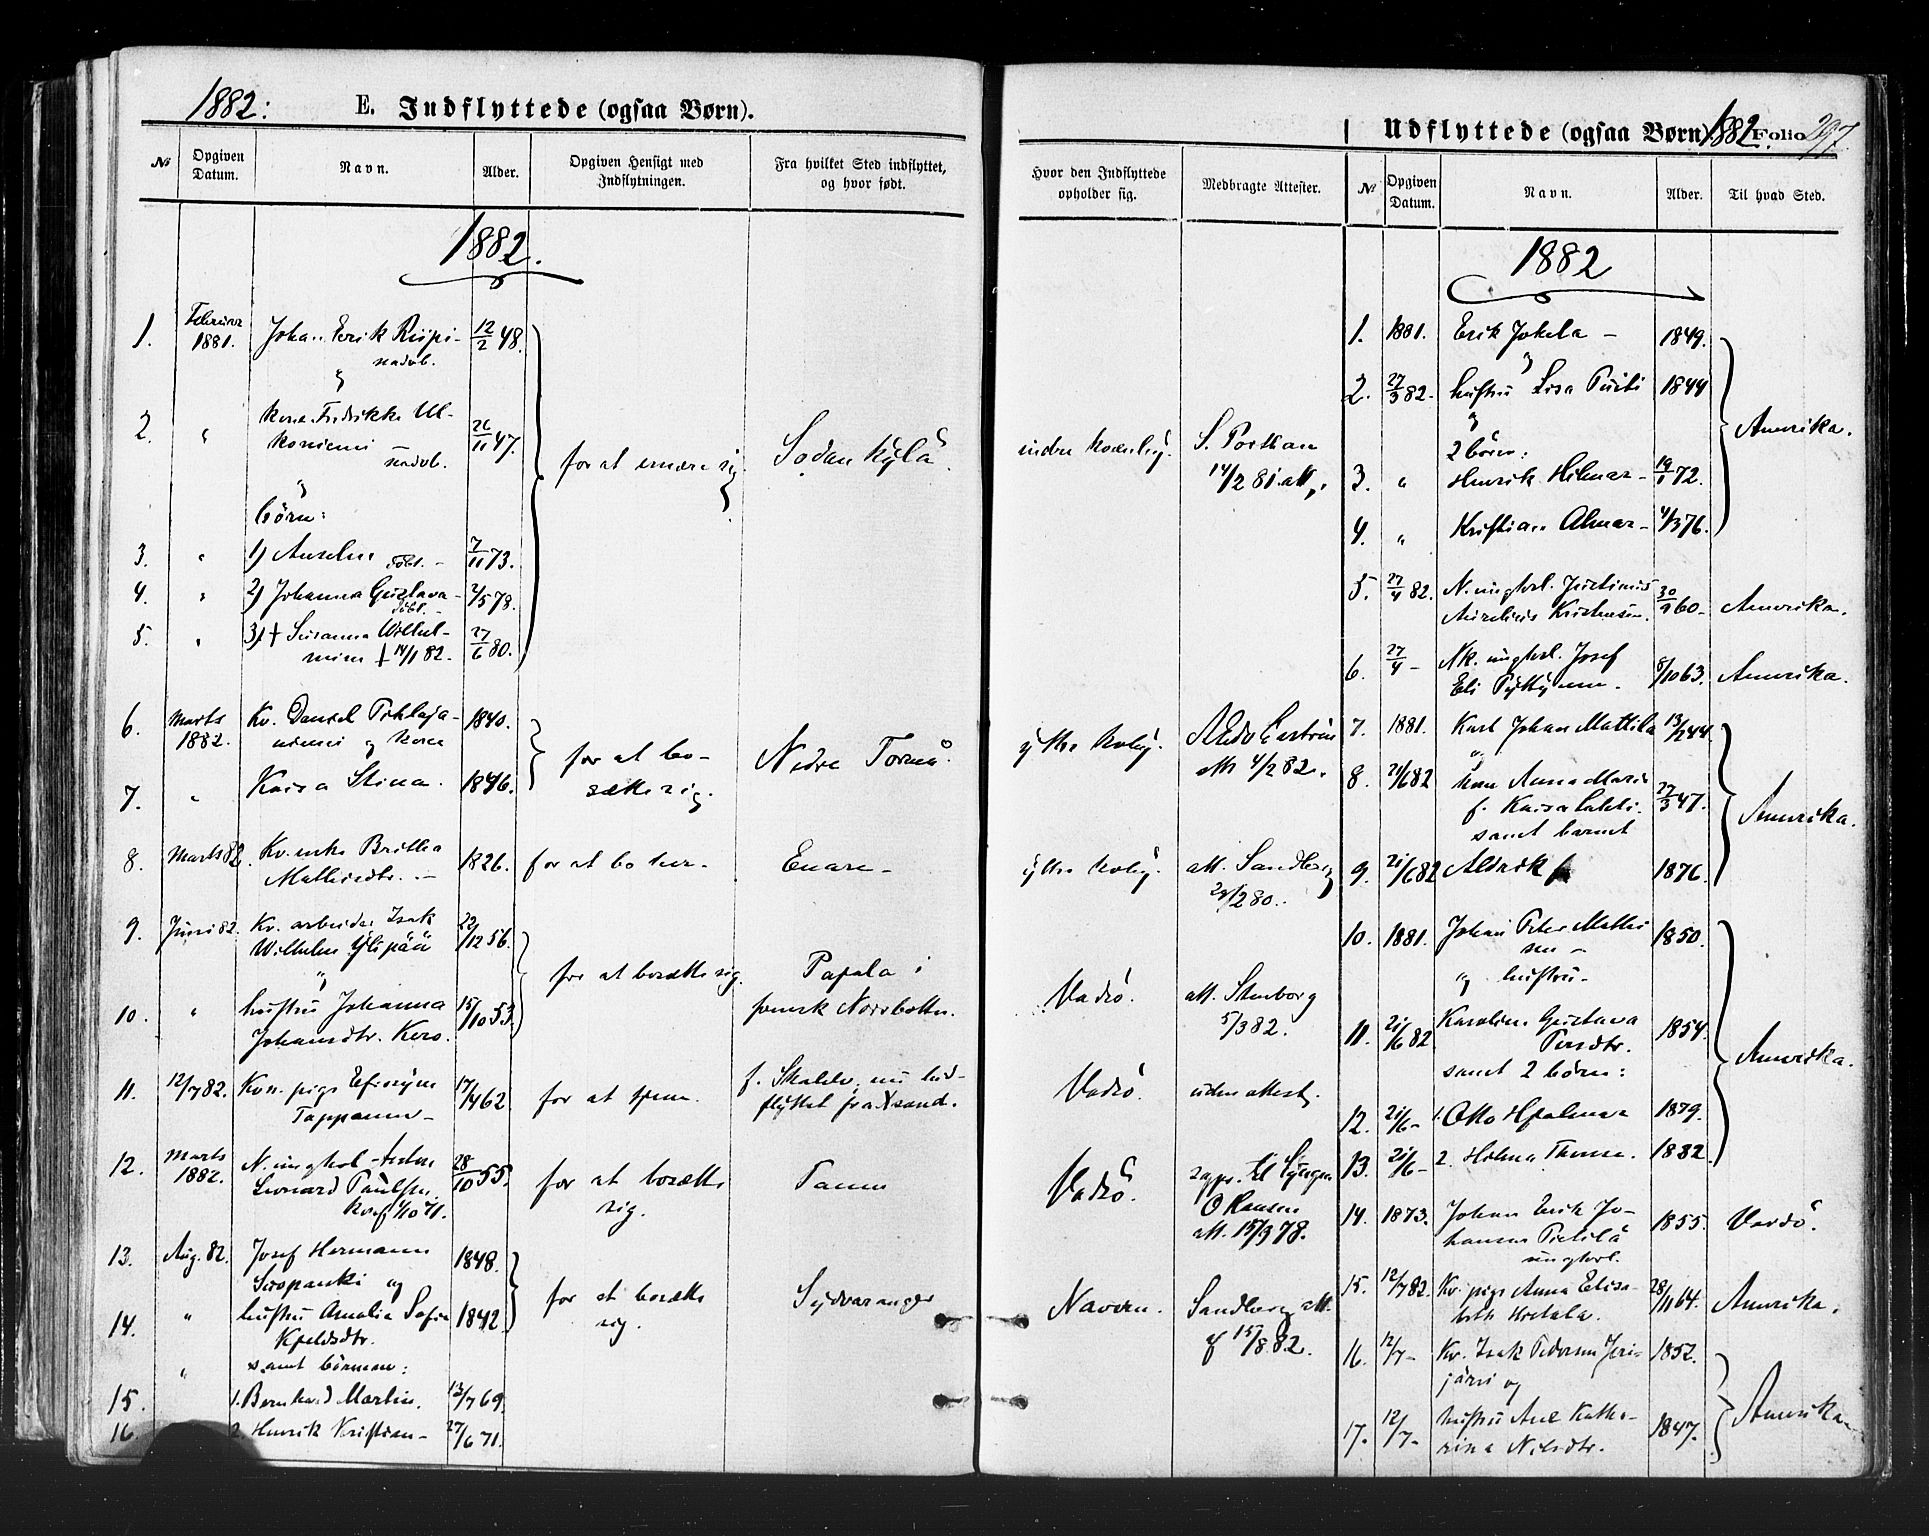 1882. E. Indflyttede (ogsaa Børn).
№ Opgiven Datum. Navn. Alder. Opgiven Hensigt med Indflytningen. Fra hvilket Sted indflyttet, og hvor født.
1882.
1. Februar 1881. Johan Erik Riipi- 12/2 48.
"
og
2. " kone Fredrikke Ul-
koniemi 26/11 47. for at ernære sig. Sodankylä.
og
børn:
3. " 1) Anselm 7/11 73.
4. " 2) Johanna Gustava 2/5 78.
5. " 3) + Susanna Wilhel-
mine + 14/1 82. 27/6 80.
6. Marts 1882. Kv. Daniel Pihlaja-
niemi og kone 1840. for at bo-
7. " Kaisa Stina. 1846. sætte sig. Nedre Torneå.
8. Marts 82. Kv. enke Britha
Mathisdtr. — 1826. for at bo her. Enare —
9. Juni 82. Kv. arbeider Isak
Wilhelm Ylipää 22/12 56. for at bosætte sig. Pajala i
og
10. " hustru Johanna 15/10 53. svensk Norrbotten.
Johansdtr. Kero.
11. 12/7 82. Kvn. pige Efrosyne
Tappanen — 17/4 62. for at tjene. f. Skallelv, nu ind-
flyttet fra Xsand.
12. Marts 1882. N. ungkarl Anton
Leonard Paulsen 28/10 55. for at bosætte
sig. Tanen
13. Aug. 82. Josef Hermann
Suopanki og 1848. for at bosætte
14. " hustru Amalia Sofia 1842. sig. Sydvaranger
Kjeldsdtr.
" samt børnene:
15. 1. Bernhard Martin. 13/7 69.
16. 2. Henrik Kristian — 27/6 71.
Udflyttede (ogsaa Børn) 1882. Folio 297.
Hvor den Indflyttede opholder sig. Medbragte Attester. № Opgiven Datum. Navn. Alder. Til hvad Sted.
1882
1. 1881. Erik Jokela — 1849.
og
2. 27/3 82. hustru Lisa 1844
og
2 børn: Amerika.
indre Kvænby. S. Porthan
14/2 81. att.
3. " Henrik Hilmar — 19/1 72.
4. " Kristian Almar — 4/3 76.
5. 27/4 82. N. ungkarl. Justinus
Aurelius Kristensen. 30/9 60. Amerika.
6. 27/4 — Nk. ungkarl. Josef
Eli 8/10 63. Amerika.
ytre Kvby. att. 4/2 82.
7. 1881. Karl Johan Mattila 13/2 44
og
8. 21/6 82 kone Anna Maria
f. Kaisa Lahti. 27/3 47. Amerika.
samt barnet
ytre Kvby. att. Sandberg
29/2 80.
9. 21/6 82 Aldrik 1876.
10. 1881. Johan Peter Mathi
sen — 1850.
og hustru —
Vadsö. att. Stenborg
5/3 82.
11. 21/6 82 Karolina Gustava
Persdtr. 1854. Amerika.
samt 2 børn:
Vadsö. uden attest.
12. 21/6 — 1. Otto Hjalmar 1879.
13. 21/6 — 2. Hilma Therese. 1882.
Vadsö.
O Hansen
att. 15/9 78.
14. 1873. Johan Erik Jo-
hansen Pietilä 1855. Vardö.
ungkarl.
Navren. Sandberg att.
af 15/8 82.
15. 12/7 82. Kv. pige Anna Elisa-
beth Hietala. 28/11 64. Amerika.
16. 12/7 — Kv. Isak Pedersen Jeri-
järvi og 1852. Amerika.
17. 12/7 — hustru Ane Katha-
rina Nilsdtr. 1847.